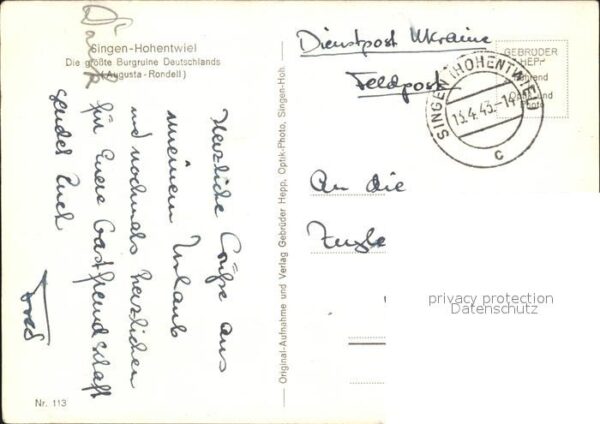 Singen-Hohentwiel
Die größte Burgruine Deutschlands
(Augusta-Rondell)
Herzliche Grüße aus
meinem Urlaub
und nochmals herzlichen
Dank
für Eure Gastfreundschaft
sendet Euch
Nr. 113
Original-Aufnahme und Verlag Gebrüder Hepp, Optik-Photo, Singen-Hoh.
Dienstpost Ukraine
Feldpost
GEBRÜDER
HEPP
Optik und
Photo
SINGEN (HOHENTWIEL)
13.4.43.-14
c
An die
privacy protection
Datenschutz